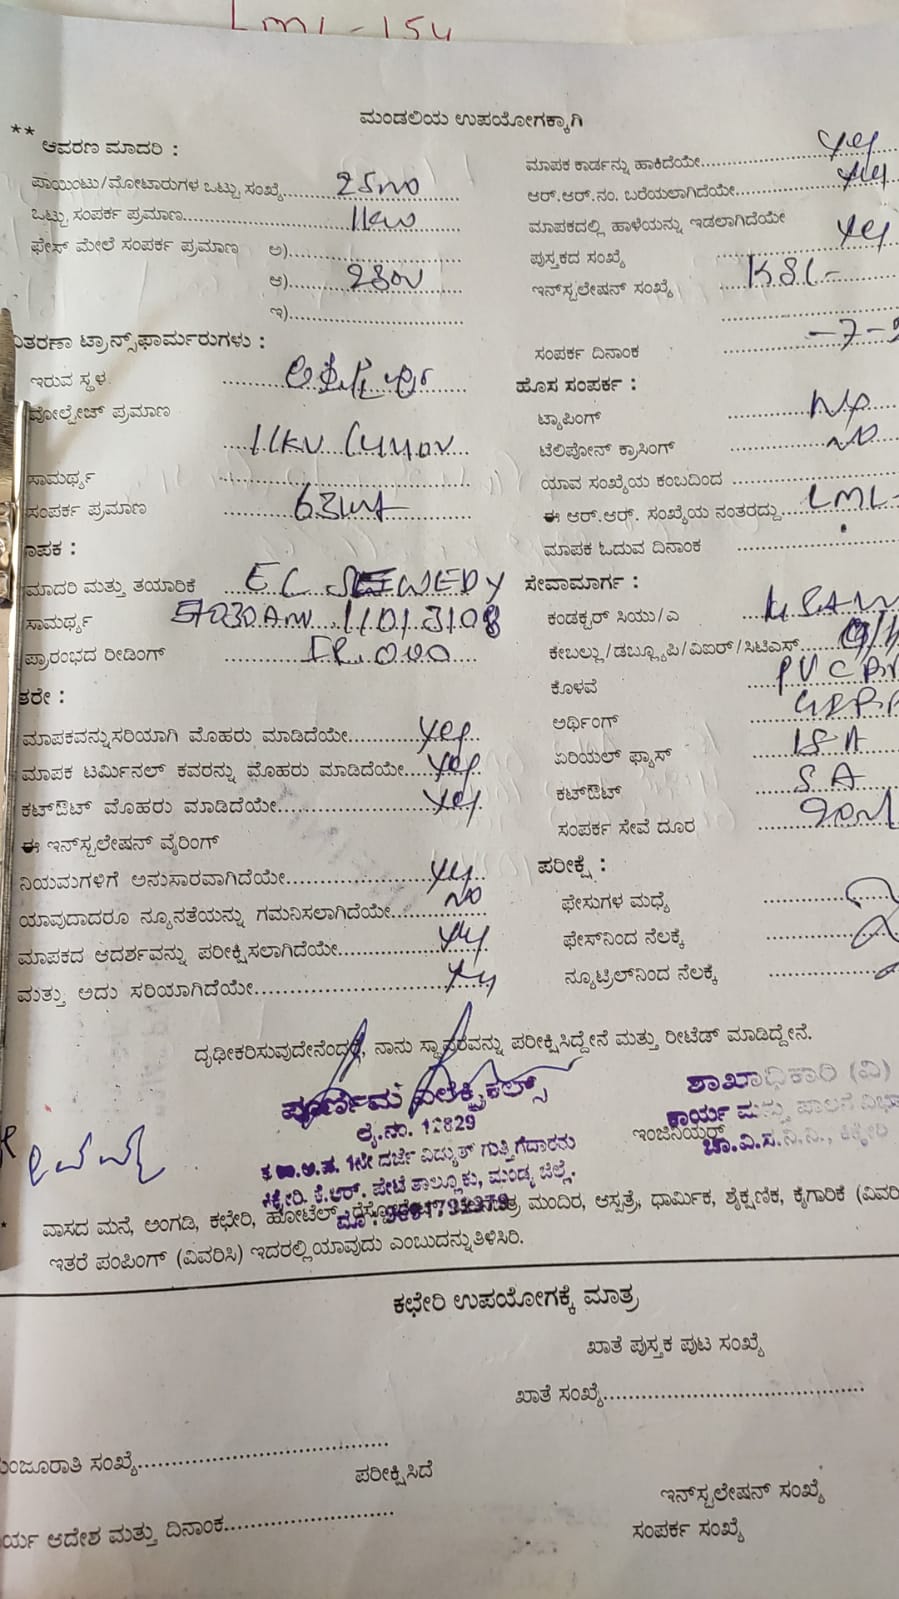 LML-154
ಮಂಡಲಿಯ ಉಪಯೋಗಕ್ಕಾಗಿ
** ಆವರಣ ಮಾದರಿ :
ಪಾಯಿಂಟು/ಮೋಟಾರುಗಳ ಒಟ್ಟು ಸಂಖ್ಯೆ
ಒಟ್ಟು ಸಂಪರ್ಕ ಪ್ರಮಾಣ 1kw
ಫೇಸ್ ಮೇಲೆ ಸಂಪರ್ಕ ಪ್ರಮಾಣ ಅ)
ಆ) 230v
ಇ)
ತರಣಾ ಟ್ರಾನ್ಸ್‌ಫಾರ್ಮರುಗಳು :
ಇರುವ ಸ್ಥಳ
ವೋಲ್ಟೇಜ್ ಪ್ರಮಾಣ
11KV/440V
ಸಾಮರ್ಥ್ಯ
ಸಂಪರ್ಕ ಪ್ರಮಾಣ 63
ಾಪಕ :
ಮಾದರಿ ಮತ್ತು ತಯಾರಿಕೆ EC
ಸಾಮರ್ಥ್ಯ
ಪ್ರಾರಂಭದ ರೀಡಿಂಗ್
ಶರೇ :
ಮಾಪಕವನ್ನು ಸರಿಯಾಗಿ ಮೊಹರು ಮಾಡಿದೆಯೇ yes
ಮಾಪಕ ಟರ್ಮಿನಲ್ ಕವರನ್ನು ಮೊಹರು ಮಾಡಿದೆಯೇ yes
ಕಟ್‌ಔಟ್ ಮೊಹರು ಮಾಡಿದೆಯೇ yes
ಈ ಇನ್‌ಸ್ಟಲೇಷನ್ ವೈರಿಂಗ್
ನಿಯಮಗಳಿಗೆ ಅನುಸಾರವಾಗಿದೆಯೇ yes
ಯಾವುದಾದರೂ ನ್ಯೂನತೆಯನ್ನು ಗಮನಿಸಲಾಗಿದೆಯೇ No
ಮಾಪಕದ ಆದರ್ಶವನ್ನು ಪರೀಕ್ಷಿಸಲಾಗಿದೆಯೇ yes
ಮತ್ತು ಅದು ಸರಿಯಾಗಿದೆಯೇ yes
ಮಾಪಕ ಕಾರ್ಡನ್ನು ಹಾಕಿದೆಯೇ yes
ಆರ್.ಆರ್.ನಂ. ಬರೆಯಲಾಗಿದೆಯೇ yes
ಮಾಪಕದಲ್ಲಿ ಹಾಳೆಯನ್ನು ಇಡಲಾಗಿದೆಯೇ yes
ಪುಸ್ತಕದ ಸಂಖ್ಯೆ
ಇನ್‌ಸ್ಟಲೇಷನ್ ಸಂಖ್ಯೆ
ಸಂಪರ್ಕ ದಿನಾಂಕ
ಹೊಸ ಸಂಪರ್ಕ :
ಟ್ಯಾಪಿಂಗ್ No
ಟೆಲಿಪೋನ್ ಕ್ರಾಸಿಂಗ್ No
ಯಾವ ಸಂಖ್ಯೆಯ ಕಂಬದಿಂದ
ಈ ಆರ್.ಆರ್. ಸಂಖ್ಯೆಯ ನಂತರದ್ದು LML-
ಮಾಪಕ ಓದುವ ದಿನಾಂಕ
ಸೇವಾಮಾರ್ಗ :
ಕಂಡಕ್ಟರ್ ಸಿಯು/ಎ
ಕೇಬಲ್ಲು/ಡಬ್ಲ್ಯೂಪಿ/ವಿಐಆರ್/ಸಿಟಿಎಸ್
ಕೊಳವೆ PVC
ಅರ್ಥಿಂಗ್
ಏರಿಯಲ್ ಫ್ಯಾಸ್ 15A
ಕಟ್‌ಔಟ್ 5A
ಸಂಪರ್ಕ ಸೇವೆ ದೂರ
ಪರೀಕ್ಷೆ :
ಫೇಸುಗಳ ಮಧ್ಯೆ
ಫೇಸ್‌ನಿಂದ ನೆಲಕ್ಕೆ
ನ್ಯೂಟ್ರಿಲ್‌ನಿಂದ ನೆಲಕ್ಕೆ
ದೃಢೀಕರಿಸುವುದೇನೆಂದರೆ, ನಾನು ಸ್ಥಾವರವನ್ನು ಪರೀಕ್ಷಿಸಿದ್ದೇನೆ ಮತ್ತು ರೀಟೆಡ್ ಮಾಡಿದ್ದೇನೆ.
ಪೂರ್ಣಿಮ ಎಲೆಕ್ಟ್ರಿಕಲ್ಸ್
ಲೈ.ನಂ. 12829
1ನೇ ದರ್ಜೆ ವಿದ್ಯುತ್ ಗುತ್ತಿಗೆದಾರರು
ಕಿಕ್ಕೇರಿ. ಕೆ.ಆರ್. ಪೇಟೆ ತಾಲ್ಲೂಕು, ಮಂಡ್ಯ ಜಿಲ್ಲೆ.
ಶಾಖಾಧಿಕಾರಿ (ವಿ)
ಕಾರ್ಯ ಮತ್ತು ಪಾಲನೆ ವಿಭಾ
ಇಂಜಿನಿಯರ್
ಚಾ.ವಿ.ಸ.ನಿ.ನಿ., ಕಿಕ್ಕೇರಿ
* ವಾಸದ ಮನೆ, ಅಂಗಡಿ, ಕಛೇರಿ, ಹೋಟೆಲ್, ಮಂದಿರ, ಆಸ್ಪತ್ರೆ, ಧಾರ್ಮಿಕ, ಶೈಕ್ಷಣಿಕ, ಕೈಗಾರಿಕೆ (ವಿವರಿ
ಇತರೆ ಪಂಪಿಂಗ್ (ವಿವರಿಸಿ) ಇದರಲ್ಲಿ ಯಾವುದು ಎಂಬುದನ್ನು ತಿಳಿಸಿರಿ.
ಕಛೇರಿ ಉಪಯೋಗಕ್ಕೆ ಮಾತ್ರ
ಖಾತೆ ಪುಸ್ತಕ ಪುಟ ಸಂಖ್ಯೆ
ಖಾತೆ ಸಂಖ್ಯೆ
ಂಜೂರಾತಿ ಸಂಖ್ಯೆ
ಪರೀಕ್ಷಿಸಿದೆ
ರ್ಯ ಆದೇಶ ಮತ್ತು ದಿನಾಂಕ
ಇನ್‌ಸ್ಟಲೇಷನ್ ಸಂಖ್ಯೆ
ಸಂಪರ್ಕ ಸಂಖ್ಯೆ